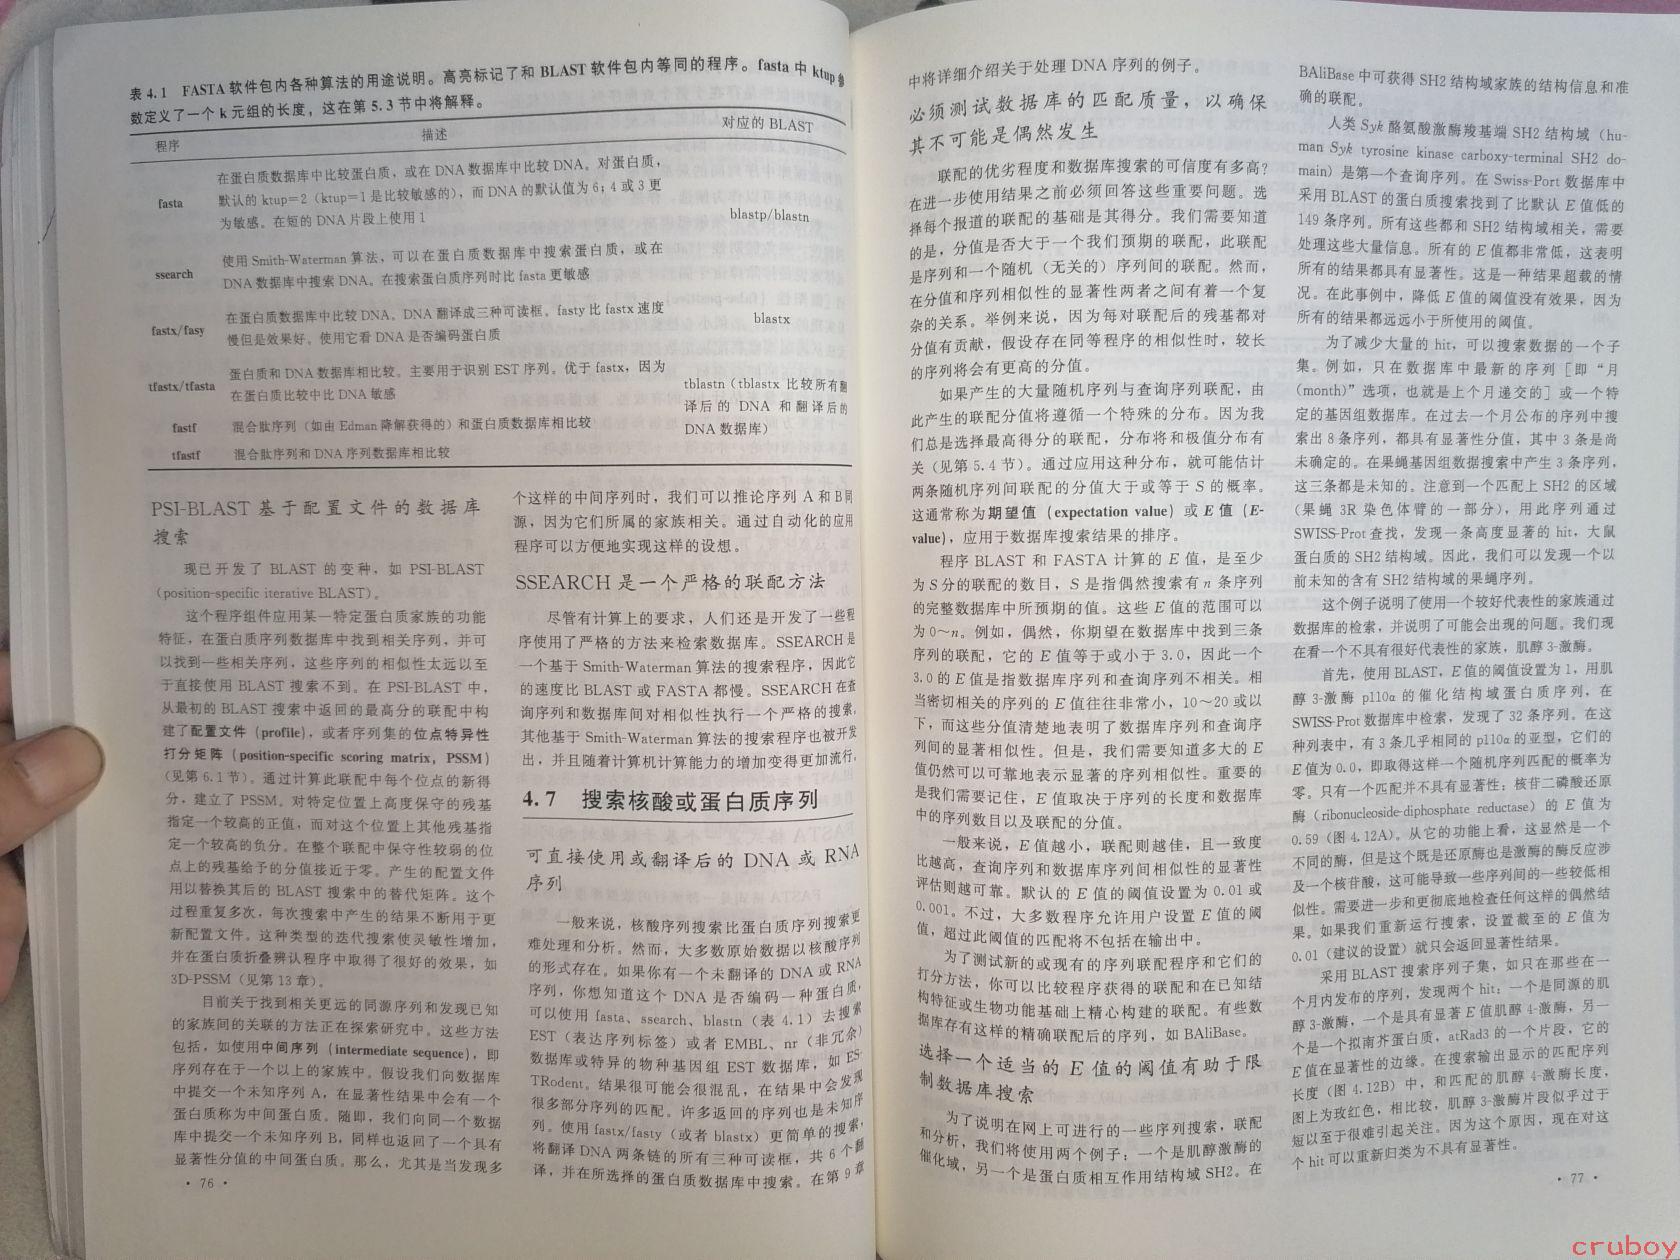 表 4.1 FASTA 软件包内各种算法的用途说明。高亮标记了和 BLAST 软件包内等同的程序。fasta 中 ktup 参
数定义了一个 k 元组的长度，这在第 5.3 节中将解释。
程序 描述 对应的 BLAST
在蛋白质数据库中比较蛋白质，或在 DNA 数据库中比较 DNA。对蛋白质，
fasta 默认的 ktup=2（ktup=1 是比较敏感的），而 DNA 的默认值为 6；4 或 3 更
为敏感。在短的 DNA 片段上使用 1
blastp/blastn
使用 Smith-Waterman 算法，可以在蛋白质数据库中搜索蛋白质，或在
ssearch
DNA 数据库中搜索 DNA。在搜索蛋白质序列时比 fasta 更敏感
在蛋白质数据库中比较 DNA。DNA 翻译成三种可读框。fasty 比 fastx 速度
fastx/fasy blastx
慢但是效果好。使用它看 DNA 是否编码蛋白质
蛋白质和 DNA 数据库相比较。主要用于识别 EST 序列。优于 fastx，因为
tfastx/tfasta
在蛋白质比较中比 DNA 敏感
tblastn（tblastx 比较所有翻
译后的 DNA 和翻译后的
DNA 数据库）
fastf 混合肽序列（如由 Edman 降解获得的）和蛋白质数据库相比较
tfastf 混合肽序列和 DNA 序列数据库相比较
PSI-BLAST 基于配置文件的数据库
搜索
现已开发了 BLAST 的变种，如 PSI-BLAST
（position-specific iterative BLAST）。
这个程序组件应用某一特定蛋白质家族的功能
特征，在蛋白质序列数据库中找到相关序列，并可
以找到一些相关序列，这些序列的相似性太远以至
于直接使用 BLAST 搜索不到。在 PSI-BLAST 中，
从最初的 BLAST 搜索中返回的最高分的联配中构
建了配置文件（profile），或者序列集的位点特异性
打分矩阵（position-specific scoring matrix，PSSM）
（见第 6.1 节）。通过计算此联配中每个位点的新得
分，建立了 PSSM。对特定位置上高度保守的残基
指定一个较高的正值，而对这个位置上其他残基指
定一个较高的负分。在整个联配中保守性较弱的位
点上的残基给予的分值接近于零。产生的配置文件
用以替换其后的 BLAST 搜索中的替代矩阵。这个
过程重复多次，每次搜索中产生的结果不断用于更
新配置文件。这种类型的迭代搜索使灵敏性增加，
并在蛋白质折叠辨认程序中取得了很好的效果，如
3D-PSSM（见第 13 章）。
目前关于找到相关更远的同源序列和发现已知
的家族间的关联的方法正在探索研究中。这些方法
包括，如使用中间序列（intermediate sequence），即
序列存在于一个以上的家族中。假设我们向数据库
中提交一个未知序列 A，在显著性结果中会有一个
蛋白质称为中间蛋白质。随即，我们向同一个数据
库中提交一个未知序列 B，同样也返回了一个具有
显著性分值的中间蛋白质。那么，尤其是当发现多
· 76 ·
个这样的中间序列时，我们可以推论序列 A 和 B 同
源，因为它们所属的家族相关。通过自动化的应用
程序可以方便地实现这样的设想。
SSEARCH 是一个严格的联配方法
尽管有计算上的要求，人们还是开发了一些程
序使用了严格的方法来检索数据库。SSEARCH 是
一个基于 Smith-Waterman 算法的搜索程序，因此它
的速度比 BLAST 或 FASTA 都慢。SSEARCH 在查
询序列和数据库间对相似性执行一个严格的搜索，
其他基于 Smith-Waterman 算法的搜索程序也被开发
出，并且随着计算机计算能力的增加变得更加流行。
4.7 搜索核酸或蛋白质序列
可直接使用或翻译后的 DNA 或 RNA
序列
一般来说，核酸序列搜索比蛋白质序列搜索更
难处理和分析。然而，大多数原始数据以核酸序列
的形式存在。如果你有一个未翻译的 DNA 或 RNA
序列，你想知道这个 DNA 是否编码一种蛋白质，
可以使用 fasta、ssearch、blastn（表 4.1）去搜索
EST（表达序列标签）或者 EMBL、nr（非冗余）
数据库或特异的物种基因组 EST 数据库，如 ES-
TRodent。结果很可能会很混乱，在结果中会发现
很多部分序列的匹配。许多返回的序列也是未知序
列。使用 fastx/fasty（或者 blastx）更简单的搜索，
将翻译 DNA 两条链的所有三种可读框，共 6 个翻
译，并在所选择的蛋白质数据库中搜索。在第 9 章
中将详细介绍关于处理 DNA 序列的例子。
必须测试数据库的匹配质量，以确保
其不可能是偶然发生
联配的优劣程度和数据库搜索的可信度有多高？
在进一步使用结果之前必须回答这些重要问题。选
择每个报道的联配的基础是其得分。我们需要知道
的是，分值是否大于一个我们预期的联配，此联配
是序列和一个随机（无关的）序列间的联配。然而，
在分值和序列相似性的显著性两者之间有着一个复
杂的关系。举例来说，因为每对联配后的残基都对
分值有贡献，假设存在同等程序的相似性时，较长
的序列将会有更高的分值。
如果产生的大量随机序列与查询序列联配，由
此产生的联配分值将遵循一个特殊的分布。因为我
们总是选择最高得分的联配，分布将和极值分布有
关（见第 5.4 节）。通过应用这种分布，就可能估计
两条随机序列间联配的分值大于或等于 S 的概率。
这通常称为期望值（expectation value）或 E 值（E-
value），应用于数据库搜索结果的排序。
程序 BLAST 和 FASTA 计算的 E 值，是至少
为 S 分的联配的数目，S 是指偶然搜索有 n 条序列
的完整数据库中所预期的值。这些 E 值的范围可以
为 0～n。例如，偶然，你期望在数据库中找到三条
序列的联配，它的 E 值等于或小于 3.0，因此一个
3.0 的 E 值是指数据库序列和查询序列不相关。相
当密切相关的序列的 E 值往往非常小，10～20 或以
下，而这些分值清楚地表明了数据库序列和查询序
列间的显著相似性。但是，我们需要知道多大的 E
值仍然可以可靠地表示显著的序列相似性。重要的
是我们需要记住，E 值取决于序列的长度和数据库
中的序列数目以及联配的分值。
一般来说，E 值越小，联配则越佳，且一致度
比越高，查询序列和数据库序列间相似性的显著性
评估则越可靠。默认的 E 值的阈值设置为 0.01 或
0.001。不过，大多数程序允许用户设置 E 值的阈
值，超过此阈值的匹配将不包括在输出中。
为了测试新的或现有的序列联配程序和它们的
打分方法，你可以比较程序获得的联配和在已知结
构特征或生物功能基础上精心构建的联配。有些数
据库存有这样的精确联配后的序列，如 BAliBase。
选择一个适当的 E 值的阈值有助于限
制数据库搜索
为了说明在网上可进行的一些序列搜索，联配
和分析，我们将使用两个例子：一个是肌醇激酶的
催化域，另一个是蛋白质相互作用结构域 SH2。在
BAliBase 中可获得 SH2 结构域家族的结构信息和准
确的联配。
人类 Syk 酪氨酸激酶羧基端 SH2 结构域（hu-
man Syk tyrosine kinase carboxy-terminal SH2 do-
main）是第一个查询序列。在 Swiss-Port 数据库中
采用 BLAST 的蛋白质搜索找到了比默认 E 值低的
149 条序列。所有这些都和 SH2 结构域相关，需要
处理这些大量信息。所有的 E 值都非常低，这表明
所有的结果都具有显著性。这是一种结果超载的情
况。在此事例中，降低 E 值的阈值没有效果，因为
所有的结果都远远小于所使用的阈值。
为了减少大量的 hit，可以搜索数据的一个子
集。例如，只在数据库中最新的序列［即“月
(month)”选项，也就是上个月递交的］或一个特
定的基因组数据库。在过去一个月公布的序列中搜
索出 8 条序列，都具有显著性分值，其中 3 条是尚
未确定的。在果蝇基因组数据搜索中产生 3 条序列，
这三条都是未知的。注意到一个匹配上 SH2 的区域
（果蝇 3R 染色体臂的一部分），用此序列通过
SWISS-Prot 查找，发现一条高度显著的 hit，大鼠
蛋白质的 SH2 结构域。因此，我们可以发现一个以
前未知的含有 SH2 结构域的果蝇序列。
这个例子说明了使用一个较好代表性的家族通过
数据库的检索，并说明了可能会出现的问题。我们现
在看一个不具有很好代表性的家族，肌醇 3-激酶。
首先，使用 BLAST，E 值的阈值设置为 1，用肌
醇 3-激酶 p110α 的催化结构域蛋白质序列，在
SWISS-Prot 数据库中检索，发现了 32 条序列。在这
种列表中，有 3 条几乎相同的 p110α 的亚型，它们的
E 值为 0.0，即取得这样一个随机序列匹配的概率为
零。只有一个匹配并不具有显著性：核苷二磷酸还原
酶（ribonucleoside-diphosphate reductase）的 E 值为
0.59（图 4.12A）。从它的功能上看，这显然是一个
不同的酶，但是这个既是还原酶也是激酶的酶反应涉
及一个核苷酸，这可能导致一些序列间的一些较低相
似性。需要进一步和更彻底地检查任何这样的偶然结
果。如果我们重新运行搜索，设置截至的 E 值为
0.01（建议的设置）就只会返回显著性结果。
采用 BLAST 搜索序列子集，如只在那些在一
个月内发布的序列，发现两个 hit：一个是同源的肌
醇 3-激酶，一个是具有显著 E 值肌醇 4-激酶，另一
个是一个拟南芥蛋白质，atRad3 的一个片段，它的
E 值在显著性的边缘。在搜索输出显示的匹配序列
长度（图 4.12B）中，和匹配的肌醇 4-激酶长度，
图上为玫红色，相比较，肌醇 3-激酶片段似乎过于
短以至于很难引起关注。因为这个原因，现在对这
个 hit 可以重新归类为不具有显著性。
· 77 ·
cruboy